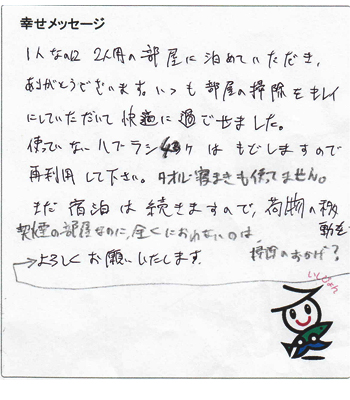 幸せメッセージ
1人なのに 2人用の部屋に泊めていただき、
ありがとうございます。いつも部屋の掃除をキレイ
にしていただいて快適に過ごせました。
使っていないハブラシ は もどしますので
再利用して下さい。タオル・寝まきも使ってません。
まだ 宿泊は続きますので、荷物の移動を
喫煙の部屋なのに、全くにおわないのは、
掃除のおかげ？
→よろしくお願いいたします。